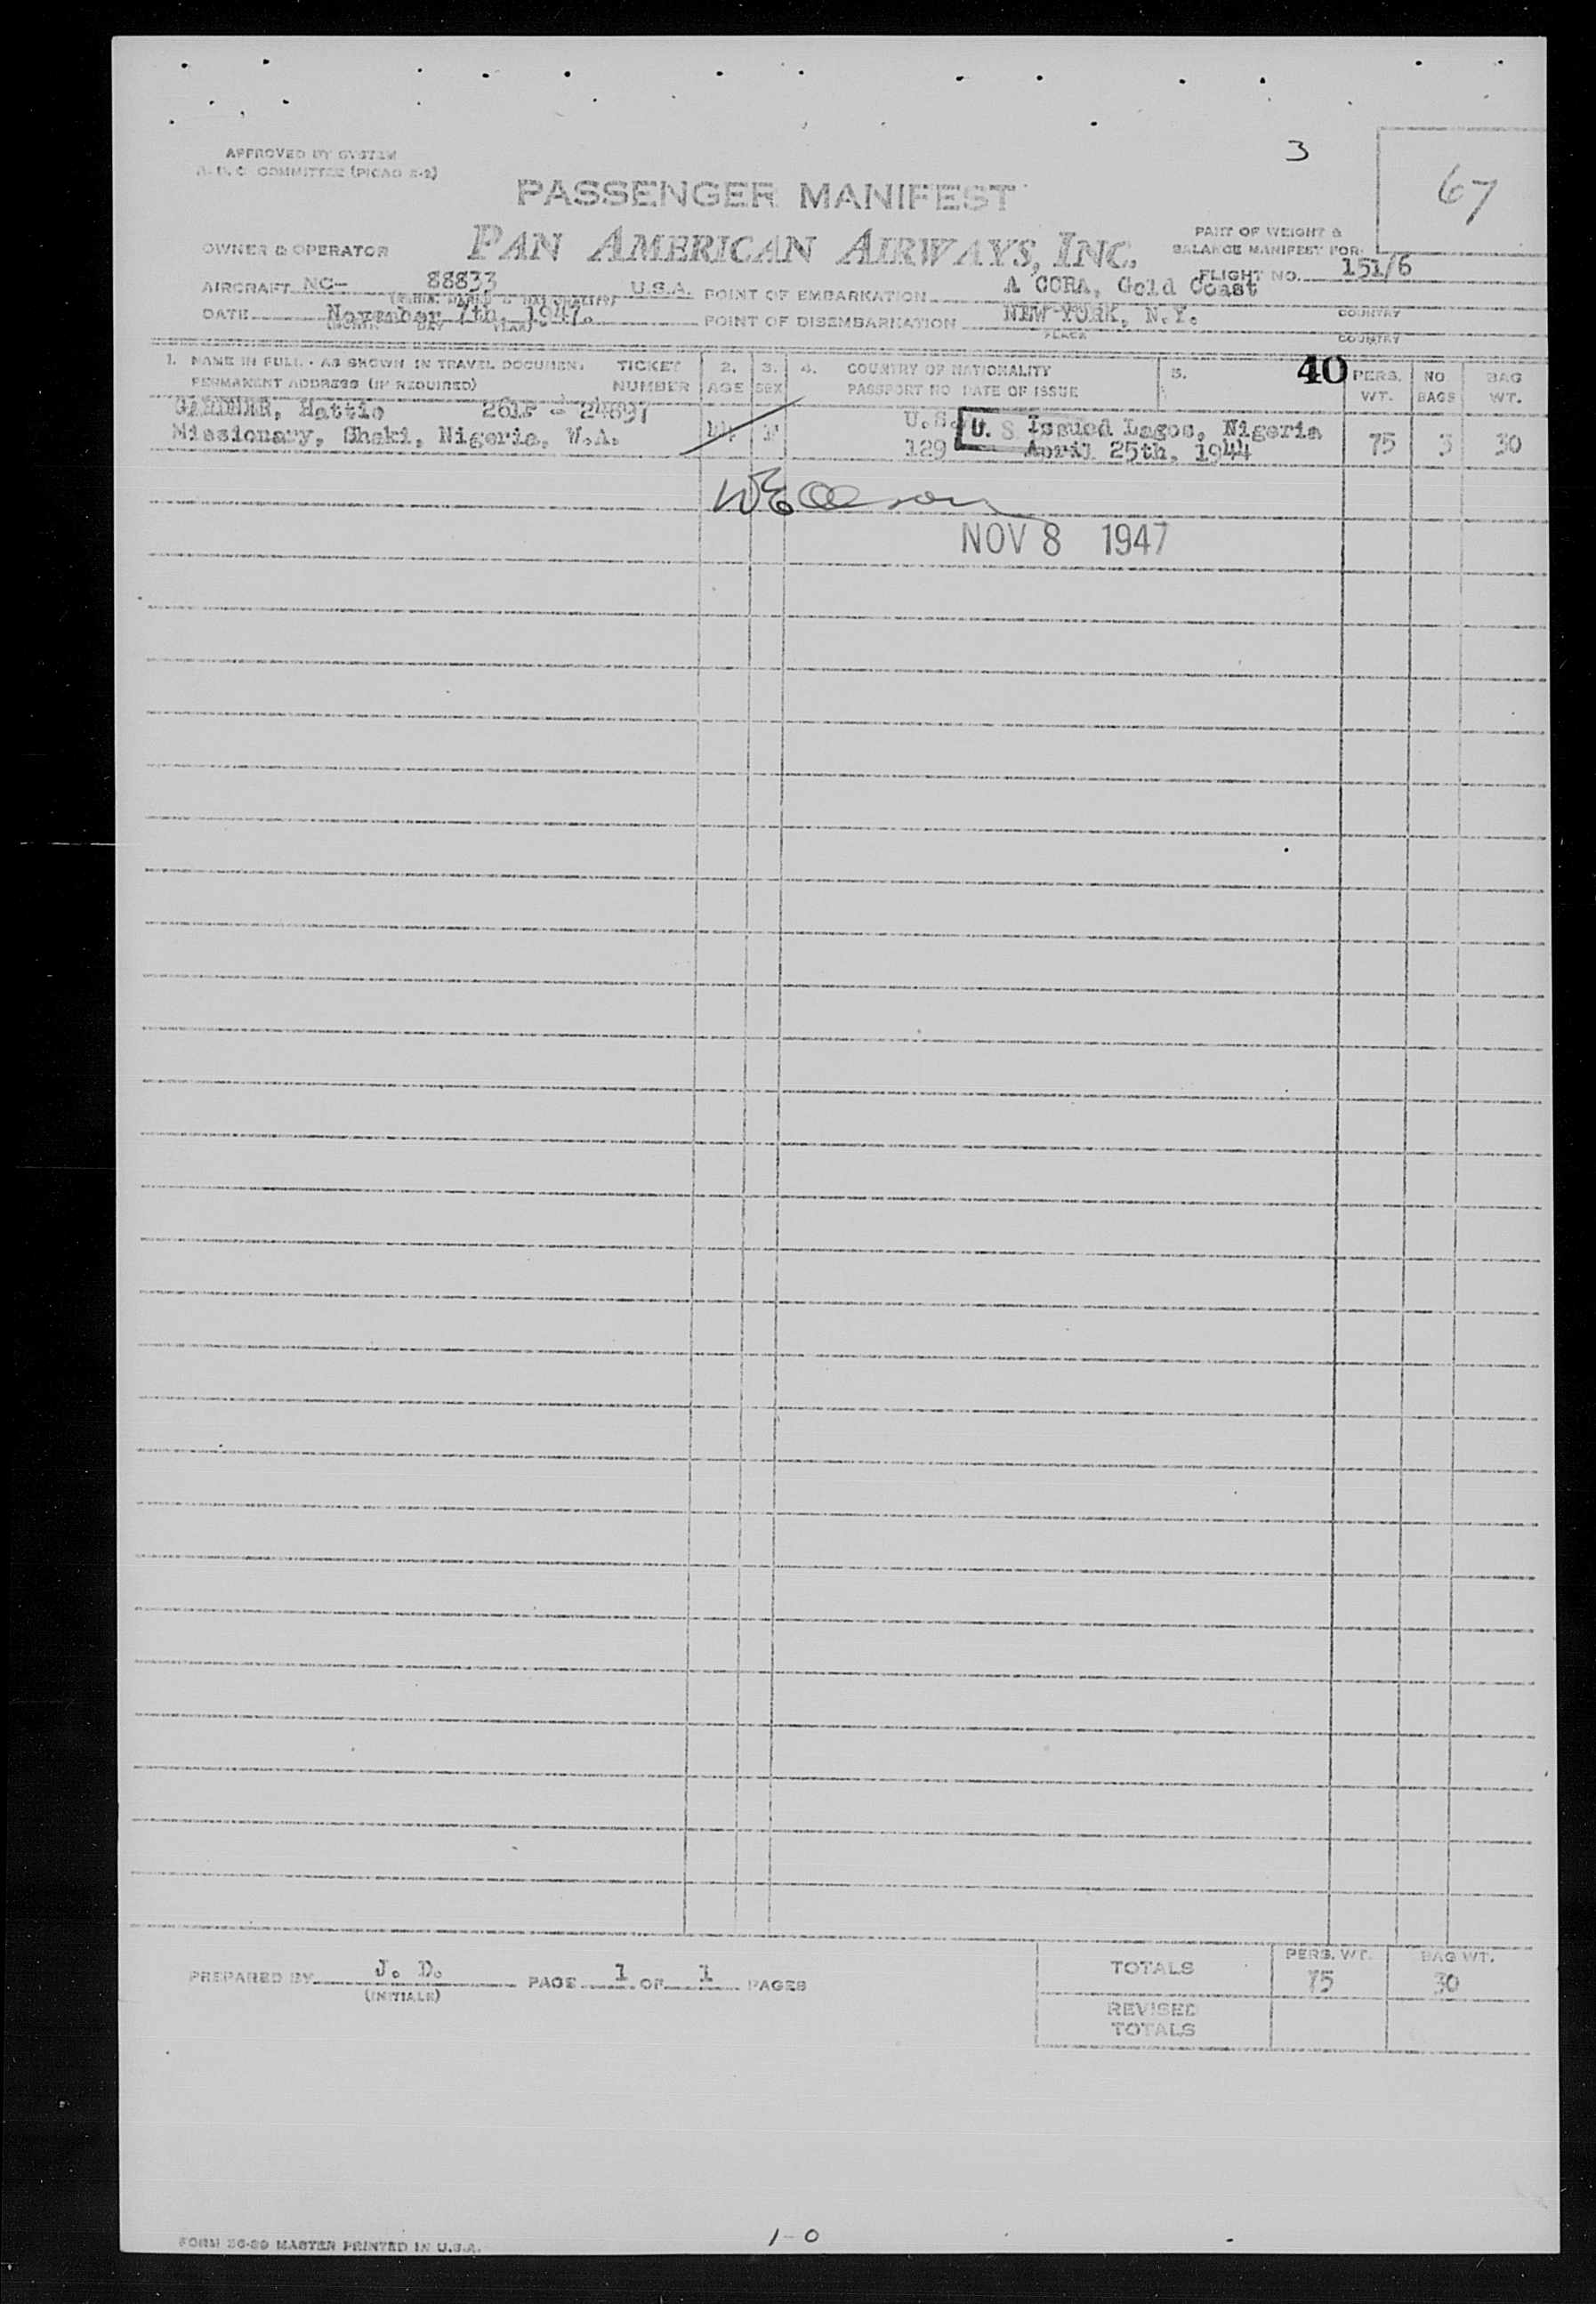 3
67
APPROVED BY SYSTEM
COMMITTEE (PICAO 2-2)
PASSENGER MANIFEST
OWNER & OPERATOR PAN AMERICAN AIRWAYS, INC.
PART OF WEIGHT &
BALANCE MANIFEST FOR
FLIGHT NO. 151/6
AIRCRAFT NC- 88833 U.S.A. POINT OF EMBARKATION A CCRA, Gold Coast
DATE November 7th, 1947. POINT OF DISEMBARKATION NEW YORK, N.Y. COUNTRY
PLACE COUNTRY
1. NAME IN FULL - AS SHOWN IN TRAVEL DOCUMENT TICKET 2. 3. 4. COUNTRY OF NATIONALITY 5. 40 PERS. NO BAG
PERMANENT ADDRESS (IF REQUIRED) NUMBER AGE SEX PASSPORT NO DATE OF ISSUE WT. BAGS WT.
GARDNER, Hattie 261F - 24697
Missionary, Shaki, Nigeria, W.A. F U.S. U. S Issued Lagos, Nigeria 75 3 30
129 April 25th, 1944
NOV 8 1947
PREPARED BY J. D. PAGE 1 OF 1 PAGES
(INITIALS)
TOTALS PERS. WT. 75 BAG WT. 30
REVISED
TOTALS
1-0
FORM 36-39 MASTER PRINTED IN U.S.A.